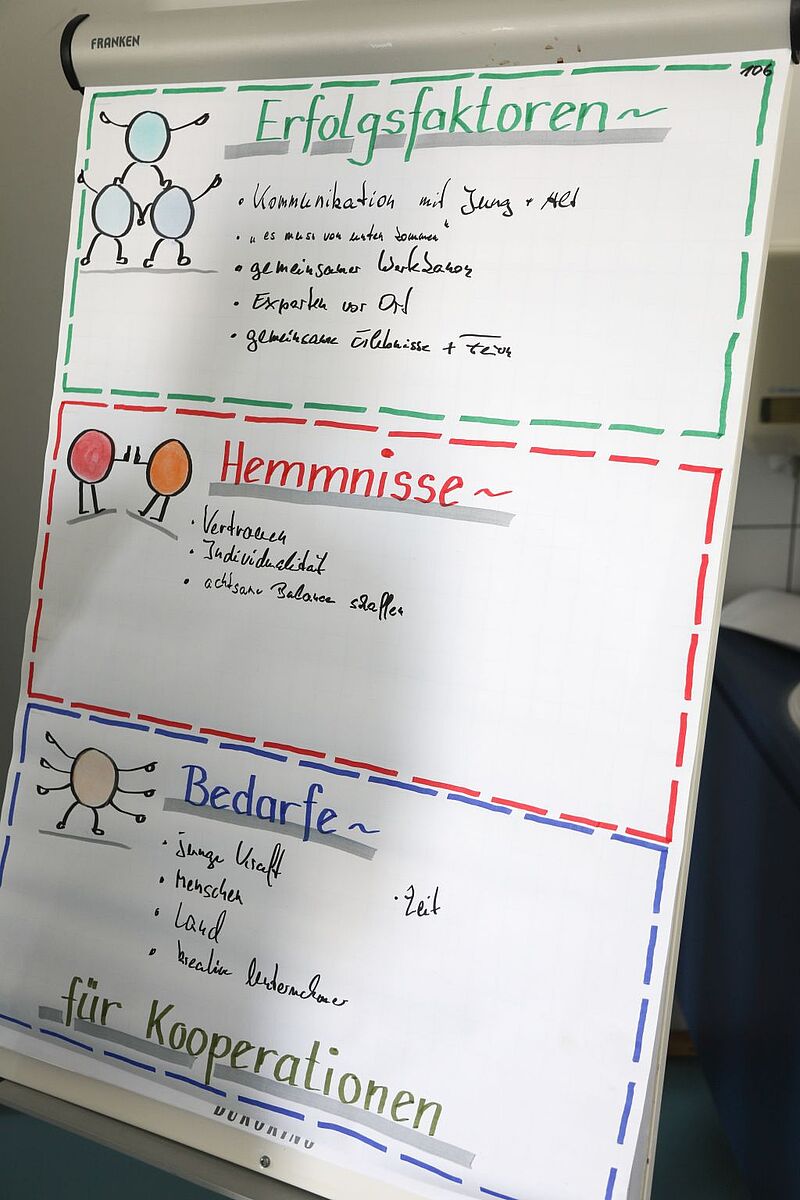 FRANKEN
106
Erfolgsfaktoren ~
• Kommunikation mit Jung + Alt
• „ es muss von unten kommen "
• gemeinsamer
• Experten vor Ort
• gemeinsame Erlebnisse + Feiern
Hemmnisse ~
• Vertrauen
• Individualität
• achtsame Balance schaffen
Bedarfe ~
• junge Kraft
• Menschen
• Zeit
• Land
• kreative Unternehmer
für Kooperationen